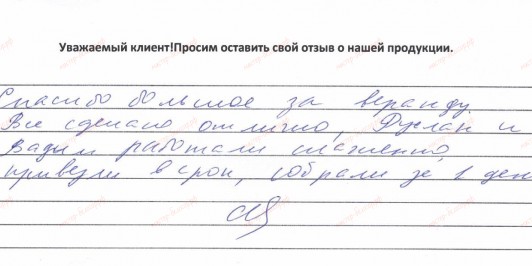 Уважаемый клиент!Просим оставить свой отзыв о нашей продукции.
Спасибо большое за веранду.
Все сделано отлично, Руслан и
Вадим работали слаженно,
привезли в срок, собрали за 1 ден